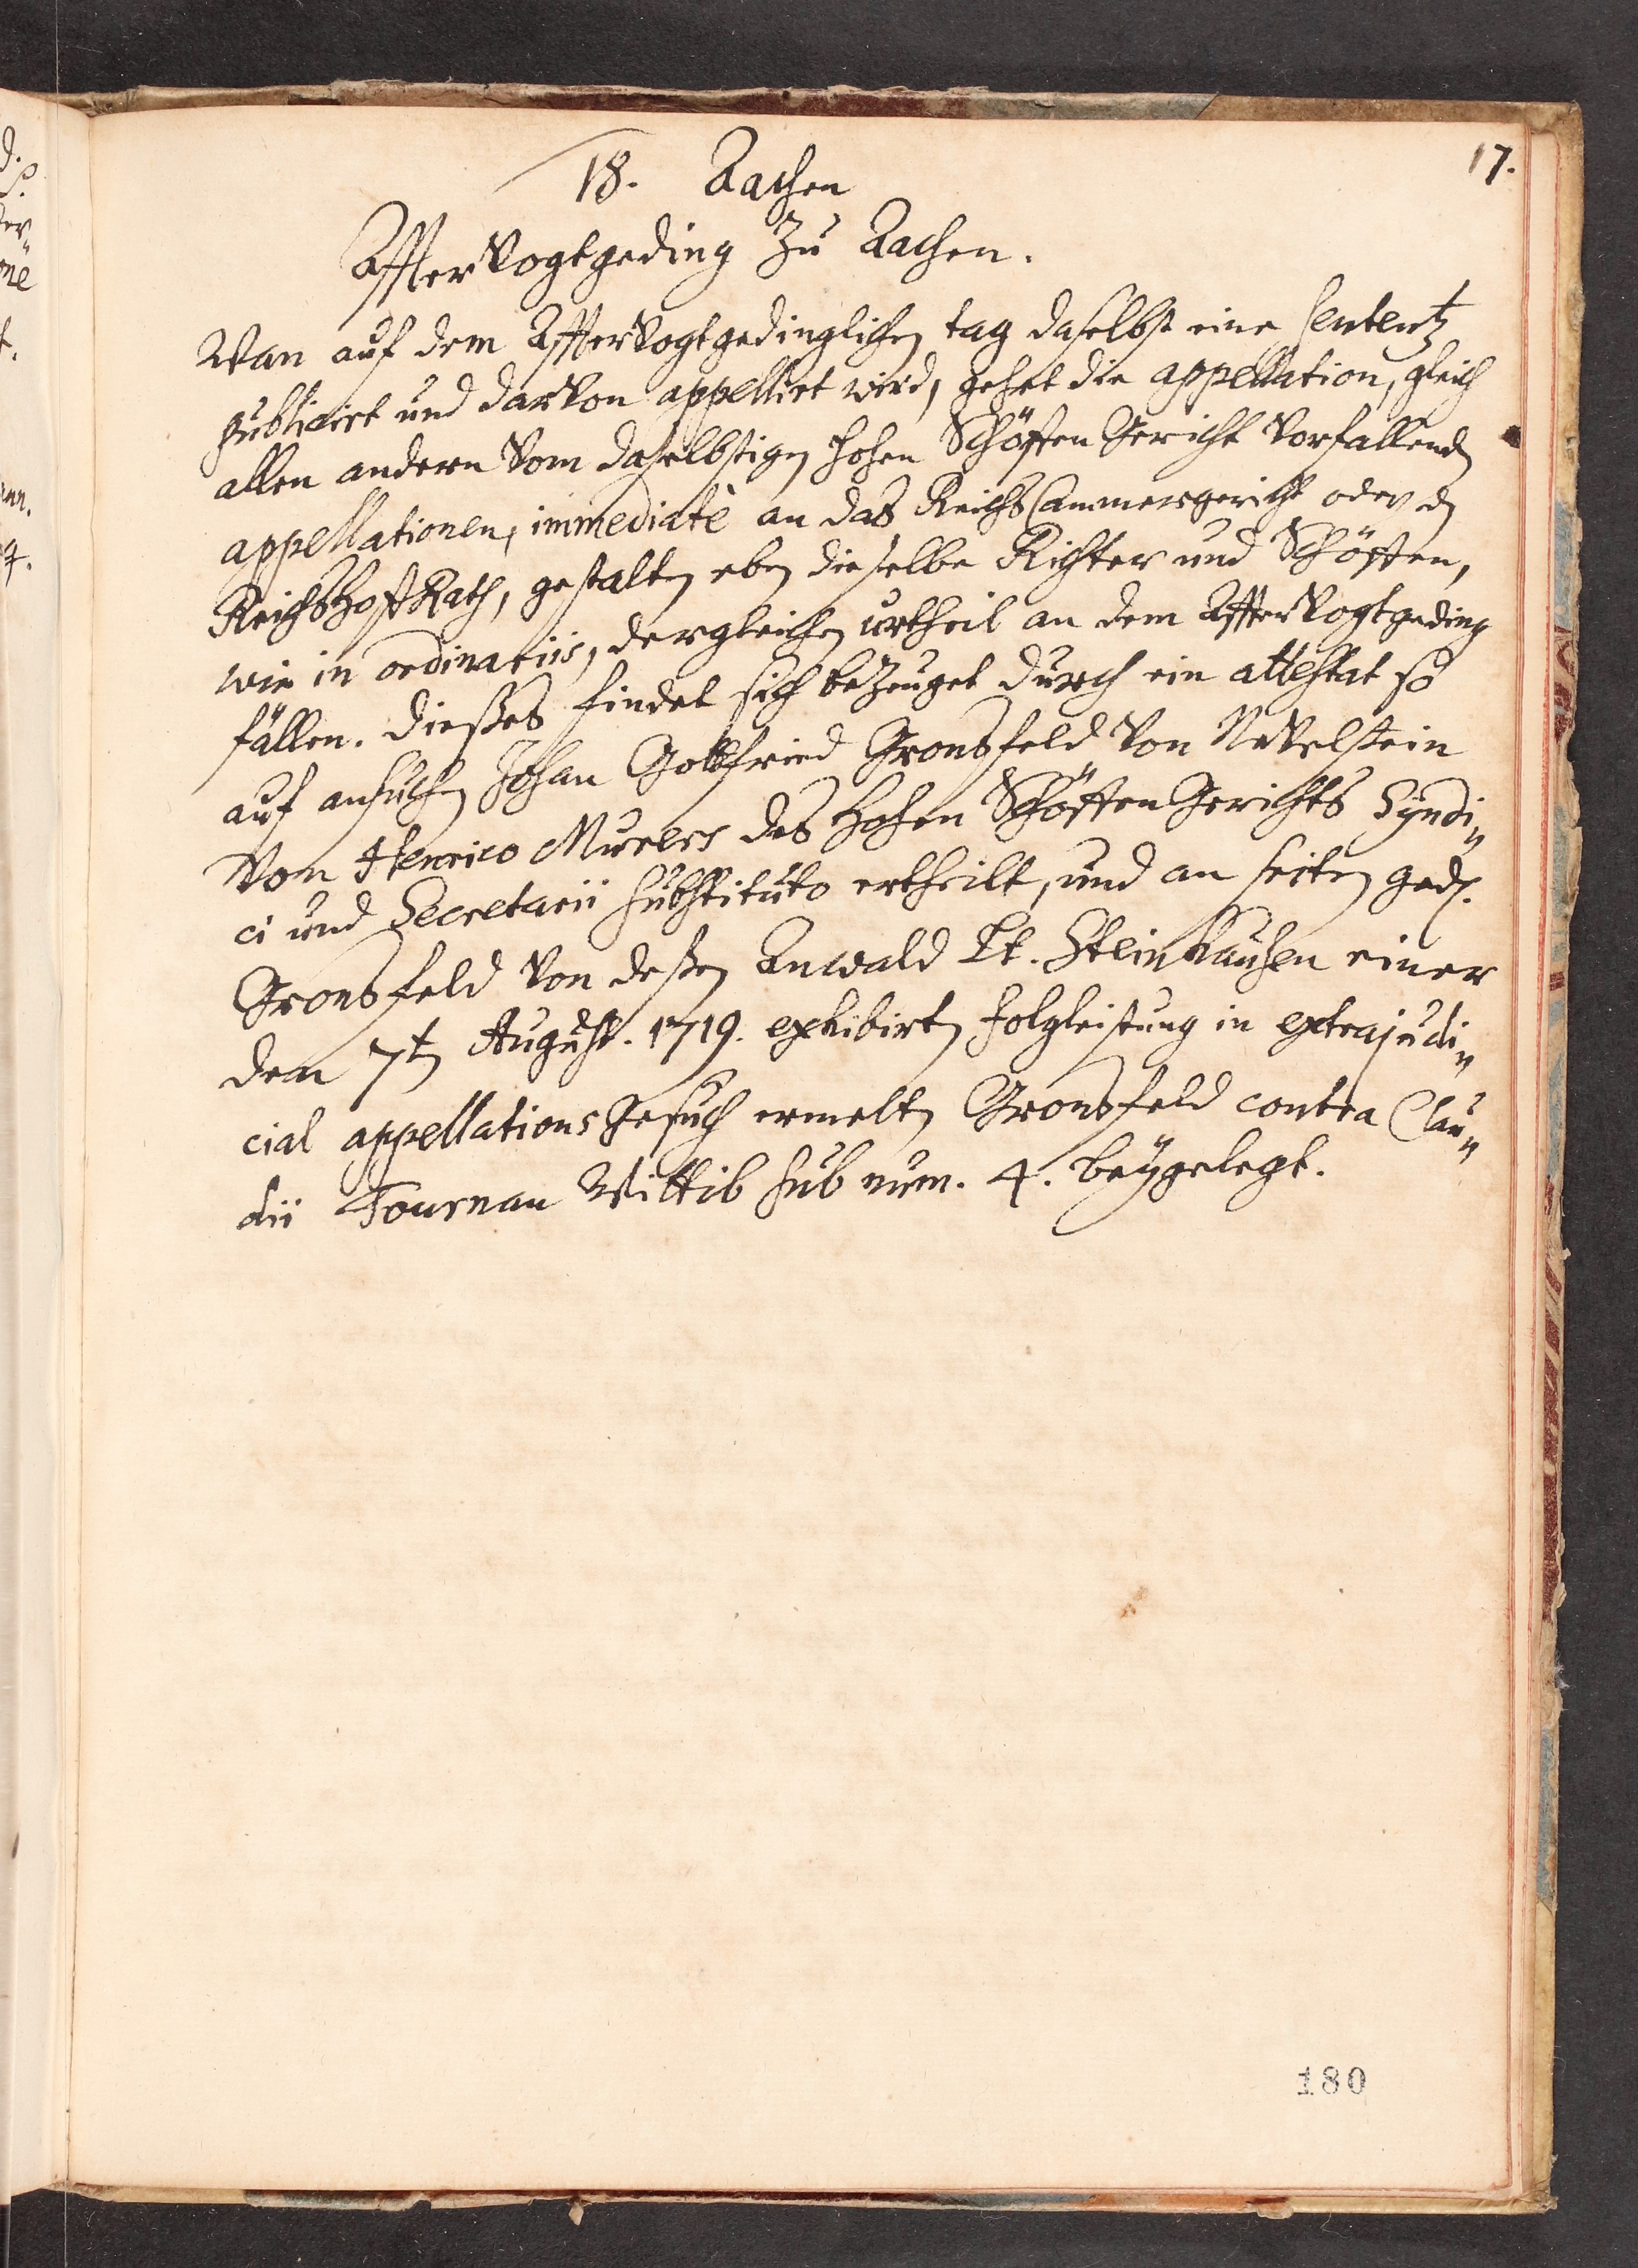 17.
18. Aachen
AffterVogtgeding zu Aachen.
Wan auf dem AffterVogtgedinglichen tag daselbst eine sententz
publicirt und darvon appellirt wird, gehet die appellation, gleich
allen andern vom daselbstigen hohen Schöffen Gericht vorfallenden
appellationen, immediatè an das ReichsCammergericht oder den
ReichsHoffRath, gestalten eben dieselbe Richter und Schöffen,
wie in ordinariis, dergleichen urtheil an dem AffterVogtgeding
fällen. Dießes findet sich bezeuget durch ein attestat so
auf ansuchen Johan Gottfried Gronsfeld von Nevelstein
vom Henrico Murers des hohen Schöffen Gerichts Syndi„
ci und Secretarii substituto ertheilt, und an seiten ged.
Gronsfeld von deßen Anwald Lt. Steinhausen einer
dem 7ten August. 1719. exhibirten folgleistung in extrajudi„
cial appellations Gesuch ermelten Gronsfeld contra Clau„
dii Tournau Wittib sub num. 4. beygelegt.
180